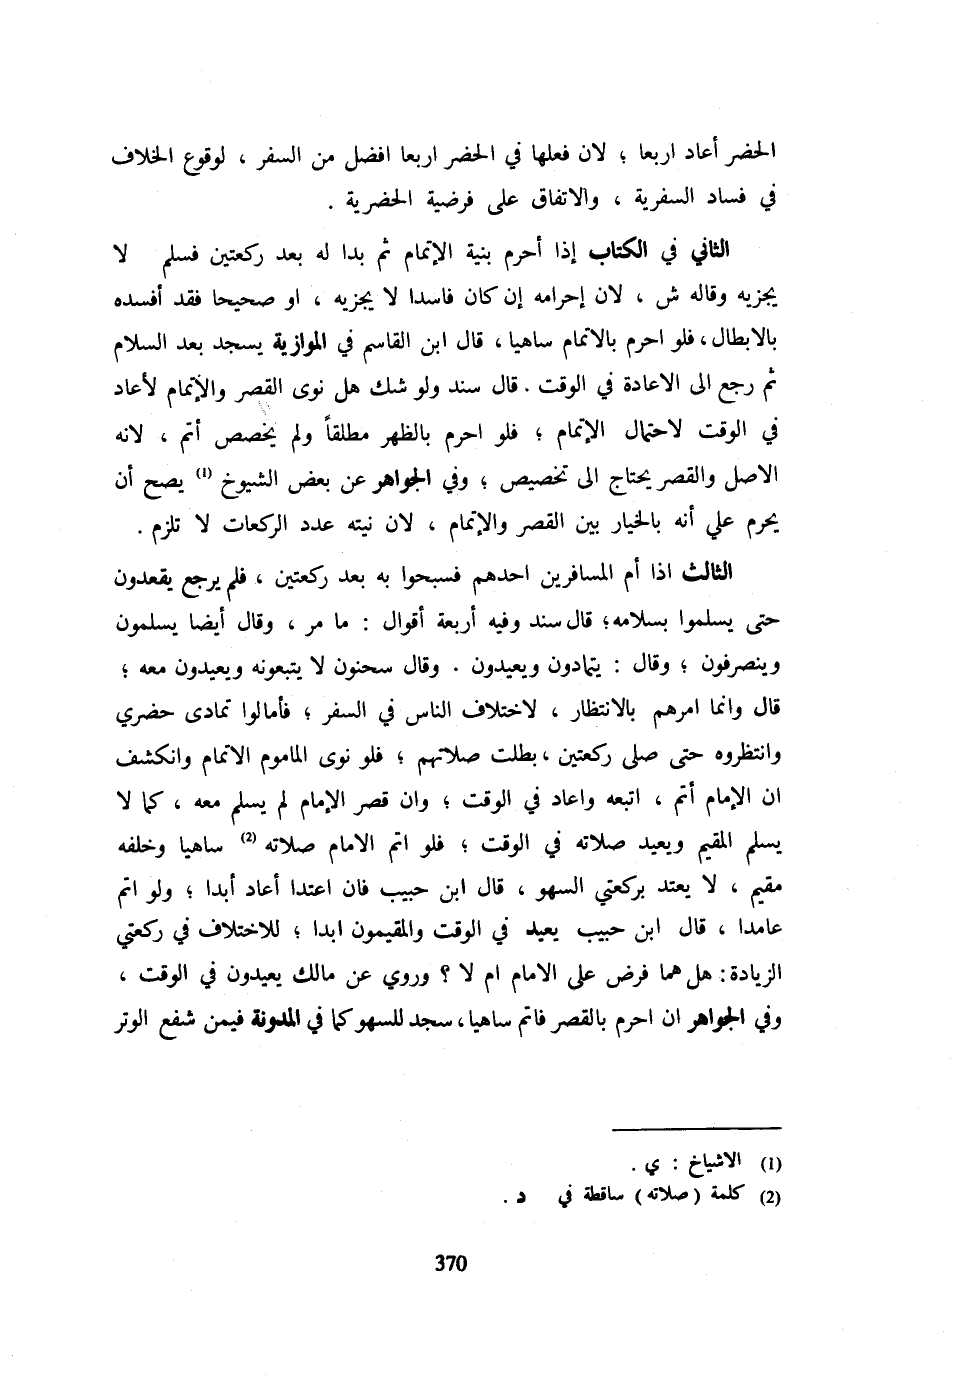 الحضر أعاد اربعا ؛ لان فعلها في الحضر اربعا افضل من السفر ، لوقوع الخلاف
في فساد السفرية ، والاتفاق على فرضية الحضرية .
الثاني في الكتاب إذا أحرم بنية الإتمام ثم بدا له بعد ركعتين فسلم لا
يجزيه وقاله ش ، لان إحرامه إن كان فاسدا لا يجزيه ، او صحيحا فقد أفسده
بالابطال ، فلو احرم بالاتمام ساهيا ، قال ابن القاسم في الموازية يسجد بعد السلام
ثم رجع الى الاعادة في الوقت . قال سند ولو شك هل نوى القصر والإتمام لأعاد
في الوقت لاحتمال الإتمام ؛ فلو احرم بالظهر مطلقاً ولم يخصص أتم ، لانه
الاصل والقصر يحتاج الى تخصيص ؛ وفي الجواهر عن بعض الشيوخ (1) يصح أن
يحرم علي أنه بالخيار بين القصر والإتمام ، لان نيته عدد الركعات لا تلزم .
الثالث اذا أم المسافرين احدهم فسبحوا به بعد ركعتين ، فلم يرجع يقعدون
حتى يسلموا بسلامه؛ قال سند وفيه أربعة أقوال : ما مر ، وقال أيضا يسلمون
وينصرفون ؛ وقال : يتمادون ويعيدون . وقال سحنون لا يتبعونه ويعيدون معه ؛
قال وانما امرهم بالانتظار ، لاختلاف الناس في السفر ؛ فأمالوا تمادى حضري
وانتظروه حتى صلى ركعتين ، بطلت صلاتهم ؛ فلو نوى الماموم الاتمام وانكشف
ان الإمام أتم ، اتبعه واعاد في الوقت ؛ وان قصر الإمام لم يسلم معه ، كما لا
يسلم المقيم ويعيد صلاته في الوقت ؛ فلو اتم الامام صلاته (2) ساهيا وخلفه
مقيم ، لا يعتد بركعتي السهو ، قال ابن حبيب فان اعتدا أعاد أبدا ؛ ولو اتم
عامدا ، قال ابن حبيب يعيد في الوقت والمقيمون ابدا ؛ للاختلاف في ركعتي
الزيادة : هل هما فرض على الامام ام لا ؟ وروي عن مالك يعيدون في الوقت ،
وفي الجواهر ان احرم بالقصر فاتم ساهيا ، سجد للسهو كما في المدونة فيمن شفع الوتر
(1) الاشياخ : ي .
(2) كلمة ( صلاته ) ساقطة في د .
370